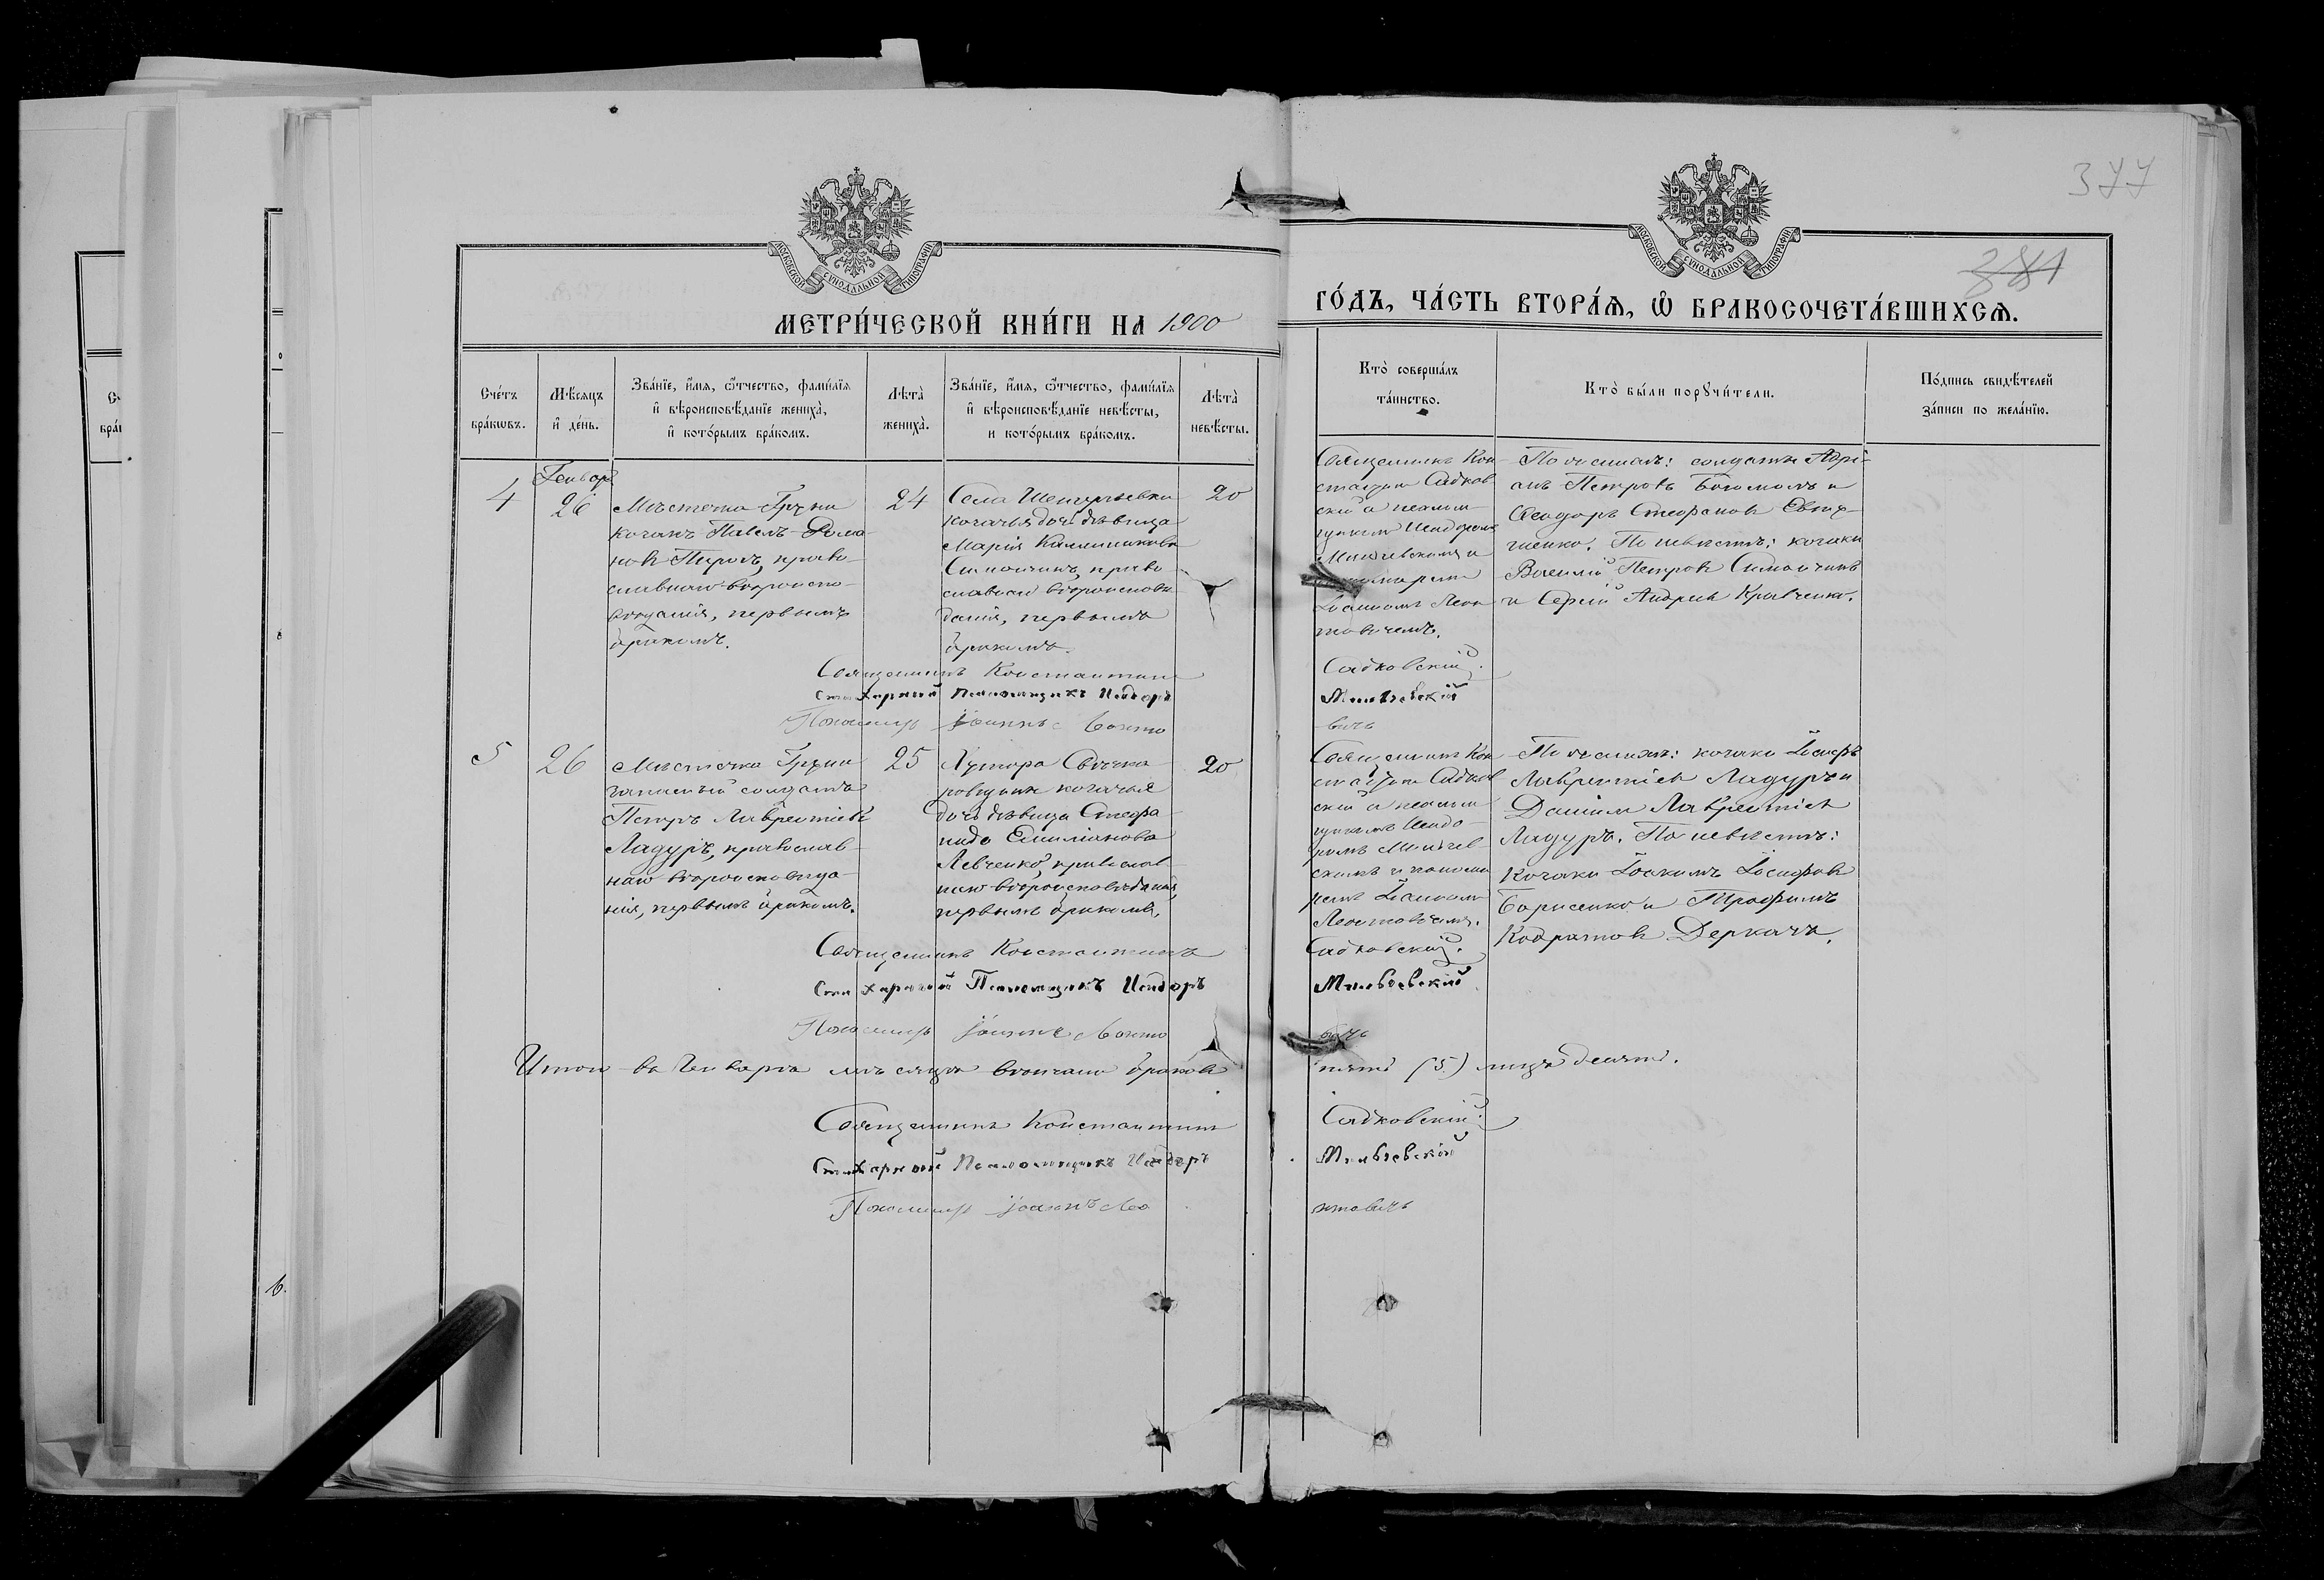 377
381
МОСКОВСКОЙ СѴНОДАЛЬНОЙ ТИПОГРАФІИ
МОСКОВСКОЙ СѴНОДАЛЬНОЙ ТИПОГРАФІИ
МЕТРИ́ЧЕСКОЙ КНИ́ГИ НА 1900
ГО́ДЪ, ЧА́СТЬ ВТОРА́Я, Ѡ҆ БРАКОСОЧЕТА́ВШИХСЯ.
Сче́тъ
бра́кѡвъ.
Мѣ́сяцъ
и҆ де́нь.
Зва́нїе, и҆́мя, ѻ҆́тчество, фамѝлїя
и҆ вѣроисповѣ́данїе жениха̀,
и҆ кото́рымъ бра́комъ.
Лѣта̀
жениха̀.
Зва́нїе, и҆́мя, ѻ҆́тчество, фамѝлїя
и҆ вѣроисповѣ́данїе невѣ́сты,
и кото́рымъ бра́комъ.
Лѣта̀
невѣ́сты.
Кто̀ соверша́лъ
та́инство.
Кто̀ бы́ли порꙋчи́тели.
По́дпись свидѣ́телей
за́писи по жела́нїю.
4
Генвар
26
Мѣстечка Груни
козакъ Павелъ Рома-
новъ Пирогъ, право-
славнаго вѣроиспо-
вѣданія, первымъ
бракомъ.
24
Села Шенгурѣевки
козачья дочь дѣвица
Марія Каллиникова
Симончикъ, право-
славнаго вѣроисповѣ
данія, первымъ
бракомъ.
20
Священникъ Кон-
стантинъ Садков
скій съ псалом-
щикомъ Исидоромъ
Мильчевскимъ и
пономаремъ
Іоанномъ Леон
товичемъ.
По женихѣ: солдаты Адрі-
анъ Петровъ Богомолъ и
Ѳеодоръ Стефановъ Евтих-
іенко. По невѣстѣ: козаки
Василій Петровъ Симончикъ
и Сергій Андреевъ Кравченко.
Священникъ Константинъ Садковскій.
Стихарный Псаломщикъ Исидоръ Мильчевскій
Пономарь Іоаннъ Леонто вичъ
5
26
Мѣстечка Груни
запасный солдатъ
Петръ Лаврентіевъ
Ладуръ, православ-
наго вѣроисповѣда-
нія, первымъ бракомъ.
25
Хутора Свѣчка-
ровщины козачья
дочь дѣвица Стефа-
нида Емиліанова
Левченко, православ-
наго вѣроисповѣданія,
первымъ бракомъ.
20
Священникъ Кон
стантинъ Садков
скій съ псалом
щикомъ Исидо-
ромъ Мильчев-
скимъ и понома
ремъ Іоанномъ
Леонтовичемъ.
По женихѣ: козаки Іосифъ
Лаврентіевъ Ладуръ и
Даніилъ Лаврентіевъ
Ладуръ. По невѣстѣ:
козаки Іоакимъ Іосифовъ
Борисенко и Трофимъ
Кодратовъ Деркачъ.
Священникъ Константинъ Садковскій.
Стихарный Псаломщикъ Исидоръ Мильчевскій
Пономарь Іоаннъ Леонто вичъ
Итого въ Генварѣ мѣсяцѣ вѣнчано браковъ пять (5) лицъ десять.
Священникъ Константинъ Садковскій.
Стихарный Псаломщикъ Исидоръ Мильчевскій
Пономарь Іоаннъ Лео нтовичъ